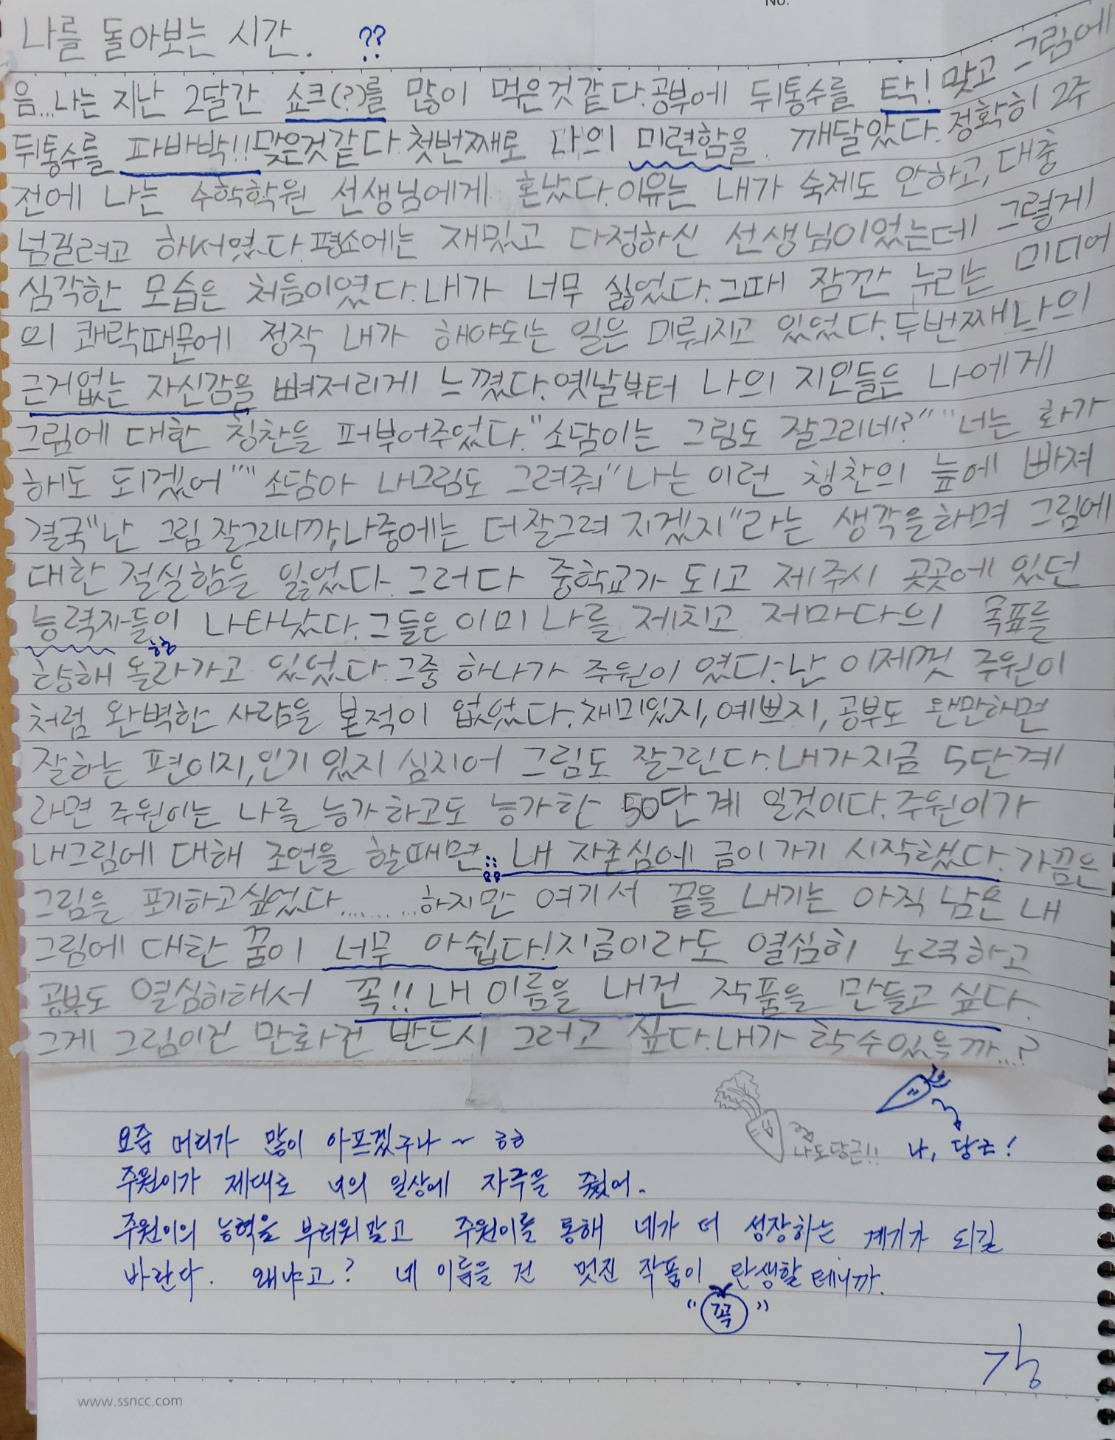 No.
나를 돌아보는 시간. ??
음...나는 지난 2달간 쇼크(?)를 많이 먹은것같다.공부에 뒤통수를 탁! 맞고 그림에
뒤통수를 파바박!!맞은것같다.첫번째로 나의 미련함을 깨달았다.정확히 2주
전에 나는 수학학원 선생님에게 혼났다.이유는 내가 숙제도 안하고,대충
넘길려고 하서였다.평소에는 재밌고 다정하신 선생님이었는데 그렇게
심각한 모습은 처음이였다.내가 너무 싫었다.그때 잠깐 누리는 미디어
의 쾌락때문에 정작 내가 해야되는 일은 미뤄지고 있었다.두번째나의
근거없는 자신감을 뼈저리게 느꼈다.옛날부터 나의 지인들은 나에게
그림에 대한 칭찬을 퍼부어주었다."소담이는 그림도 잘그리네?" "너는 화가
해도 되겠어""소담아 내그림도 그려줘"나는 이런 칭찬의 늪에 빠져
결국"난 그림 잘그리니까,나중에는 더잘그려 지겠지"라는 생각을하며 그림에
대한 절실함을 잃었다.그러다 중학교가 되고 제주시 곳곳에 있던
능력자들이 나타났다.그들은 이미 나를 제치고 저마다의 목표를
ㅎㅎ
향해 올라가고 있었다.그중 하나가 주원이 였다.난 이제껏 주원이
처럼 완벽한 사람을 본적이 없었다.재미있지,예쁘지,공부도 왠만하면
잘하는 편이지,인기 있지 심지어 그림도 잘그린다.내가지금 5단계
라면 주원이는 나를 능가하고도 능가한 50단계 일것이다.주원이가
내그림에 대해 조언을 할때면 내 자존심에 금이가기 시작했다.가끔은
그림을 포기하고싶었다.........하지만 여기서 끝을 내기는 아직 남은 내
그림에 대한 꿈이 너무 아쉽다!지금이라도 열심히 노력하고
공부도 열심히해서 꼭!!내 이름을 내건 작품을 만들고 싶다.
그게 그림이건 만화건 반드시 그러고 싶다.내가 할수있을까...?
나도당근!! 나, 당근!
요즘 머리가 많이 아프겠구나~ ㅎㅎ
주원이가 제대로 너의 일상에 자극을 줬어.
주원이의 능력을 부러워말고 주원이를 통해 네가 더 성장하는 계기가 되길
바란다. 왜냐고? 네 이름을 건 멋진 작품이 탄생할 테니까.
"꼭"
강
www.ssncc.com